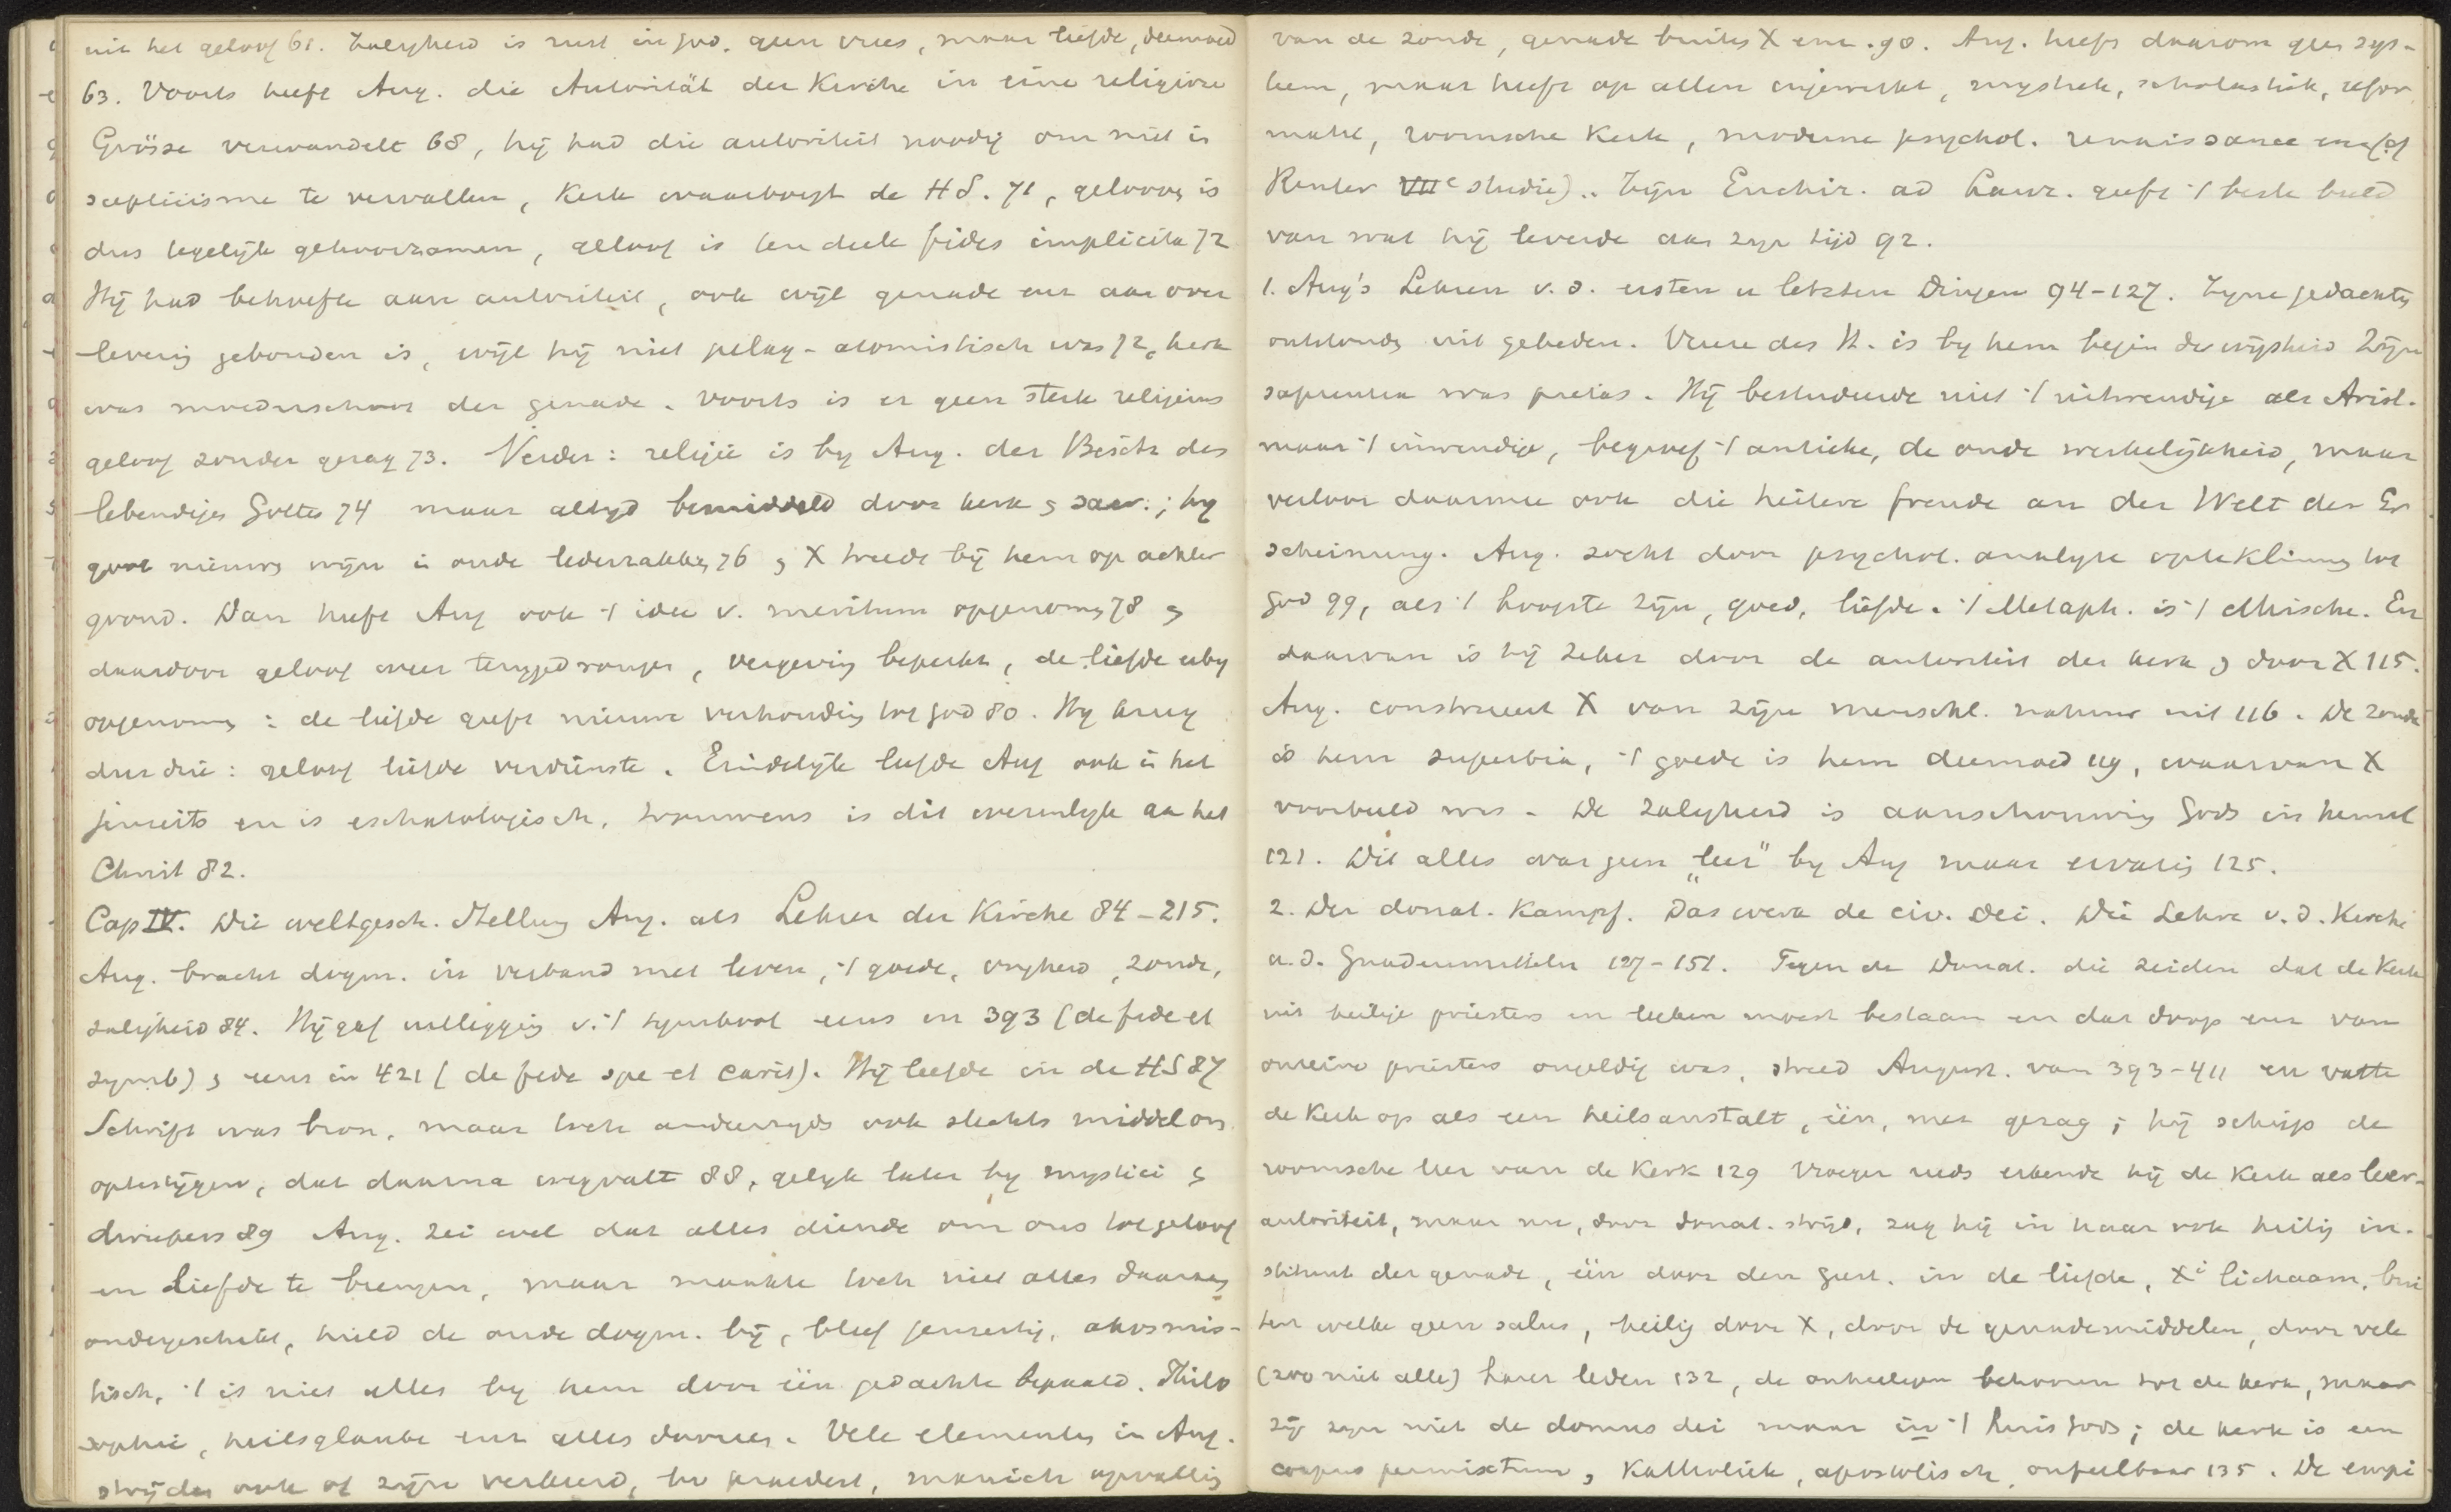 uit het geloof 61. Zaligheid is rust in God. geen vrees, maar liefde, deemoed
63. Voorts heeft Aug. die Autorität der Kirche in eine religiöse
Grösse verwandelt 68, hij had die autoriteit noodig om niet in
scepticisme te vervallen, Kerk waarborgt de HS. 71, gelooven is
dus tegelijk gehoorzamen, geloof is ten deele fides implicita 72
Hij had behoefte aan autoriteit, ook wijl genade en aan over
levering gebonden is, wijl hij niet pelag-atomistisch was 72, kerk
was moederschoot der genade. Voorts is er geen sterk religieus
geloof zonder gezag 73. Verder: religie is by Aug. der Besitz des
lebendigen Gottes 74 maar altyd bemiddeld door kerk en sacr.; hy
goot nieuwen wijn in oude lederzakken 76 en X treedt bij hem op achter
grond. Dan heeft Aug ook 't idee v. meritum opgenomen 78 en
daardoor geloof weer teruggedrongen, vergeving beperkt, de liefde erby
opgenomen: de liefde geeft nieuwe verhouding tot God 80. Hy kreeg
dus drie: geloof liefde verdienste. Eindelijk leefde Aug ook in het
jenseits en is eschatologisch, trouwens is dit wezenlyk aan het
Christ 82.
Cap IV. Die weltgesch. Stellung Aug. als Lehrer der Kirche 84-215.
Aug. bracht dogm. in verband met leven, 't goede, vryheid, zonde,
zaligheid 84. Hij gaf uitlegging v. 't symbool eens in 393 (de fide et
symb) en eens in 421 (de fide spe et carit). Hij leefde in de HS 87
Schrift was bron, maar toch anderzyds ook slechts middel om
optestijgen, dat daarna wegvalt 88, gelyk later by mystici en
dweepers 89 Aug. zei wel dat alles diende om ons tot geloof
en liefde te brengen, maar maakte toch niet alles daaraan
ondergeschikt, hield de oude dogm. bij, bleef jenseitig, akosmis-
tisch, 't is niet alles by hem door één gedachte bepaald. Philo
sophie, heilsglaube enz alles dooreen. Vele elementen in Aug.
strijden ook of zijn verkeerd, bv praedest, manich opvatting
van de zonde, genade buiten X enz. 90. Aug. heeft daarom geen sys-
teem, maar heeft op allen ingewerkt, mystiek, scholastiek, refor
matie, roomsche Kerk, moderne psychol. renaissance enz (cf
Reuter VIIe studie).. Zijn Enchir. ad Laur. geeft 't beste beeld
van wat hij leverde aan zijn tijd 92.
1. Aug's Lehren v. d. ersten u letzten Dingen 94-127. Zijne gedachten
ontstonden uit gebeden. Vreeze des H. is by hem begin der wijsheid Zijn
sapientia was pietas. Hij bestudeerde niet 't uitwendige als Arist.
maar 't inwendige, begroef 't antieke, de oude werkelijkheid, maar
verloor daarmee ook die heitere Freude an der Welt der Er
scheinung. Aug. zocht door psychol. analyse opteklimmen tot
God 99, als 't hoogste zijn, goed, liefde. 't Metaph. is 't ethische. En
daarvan is hij zeker door de autoriteit der kerk en door X 115.
Aug. construeert X van zijne menschl. natuur uit 116. De zonde
is hem superbia, 't goede is hem deemoed 119, waarvan X
voorbeeld was. De zaligheid is aanschouwing Gods in hemel
121. Dit alles was geen „leer" by Aug maar ervaring 125.
2. Der donat. Kampf. Das werk de civ. Dei. Die Lehre v. d. Kirche
u. d. Gnadenmitteln 127-151. Tegen de Donat. die zeiden dat de Kerk
uit heilige priesters en leeken moest bestaan en dat doop enz van
onreine priesters ongeldig was, streed August. van 393-411 en vatte
de Kerk op als een heilsanstalt, één, met gezag; hij schiep de
roomsche leer van de Kerk 129 Vroeger reeds erkende hij de Kerk als leer-
autoriteit, maar nu, door donat. strijd, zag hij in haar ook heilig in-
stituut der genade, één door den Geest. in de liefde, Xi lichaam, bui
ten welke geen salus, heilig door X, door de genademiddelen, door vele
(zoo niet alle) harer leden 132, de onheiligen behooren tot de kerk, maar
zij zyn niet de domus dei maar in 't huis Gods; de kerk is een
corpus permixtum, Katholiek, apostolisch, onfeilbaar 135. De empi